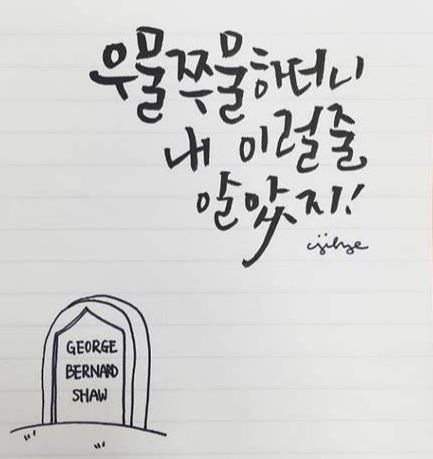 우물쭈물하더니
내 이럴줄
알았지!
GEORGE
BERNARD
SHAW